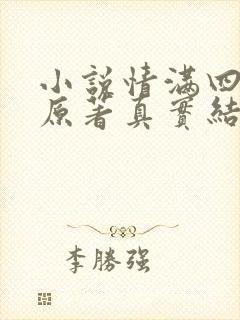 小說情滿四
原著真實結
李勝強